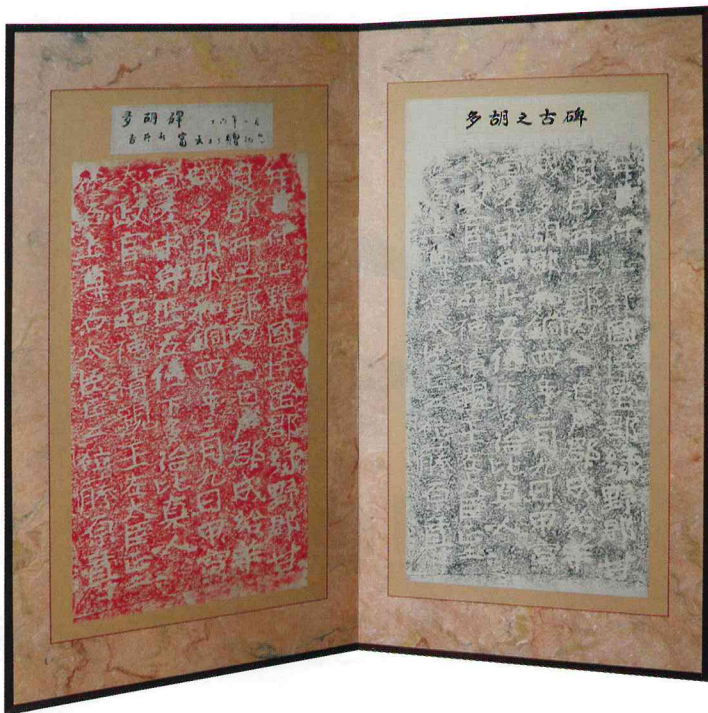 多胡之古碑
弁官符上野國片岡郡緑野郡甘
良郡并三郡内三百戸郡成給羊
成多胡郡和銅四年三月九日甲寅
宣左中弁正五位下多治比真人
太政官二品穂積親王左太臣正二
位石上尊右太臣正二位藤原尊
多胡碑
弁官符上野國片岡郡緑野郡甘
良郡并三郡内三百戸郡成給羊
成多胡郡和銅四年三月九日甲寅
宣左中弁正五位下多治比真人
太政官二品穂積親王左太臣正二
位石上尊右太臣正二位藤原尊